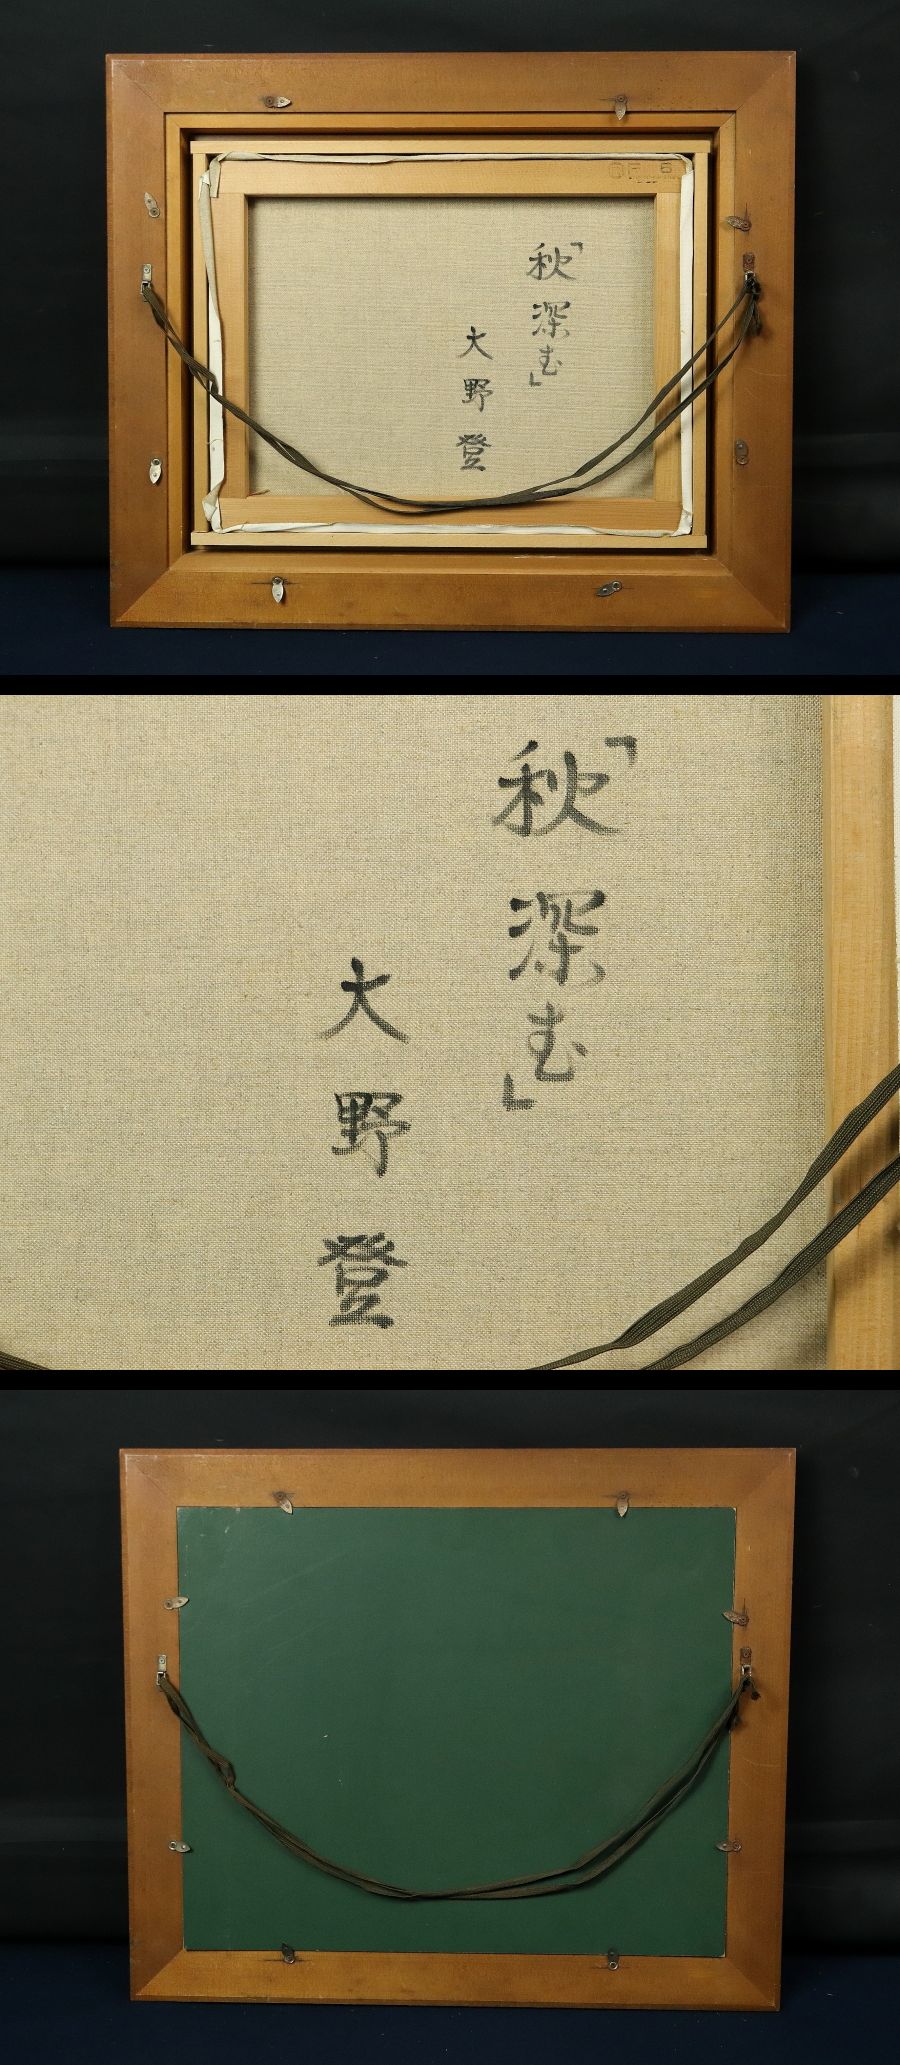 「秋深む」
大野登
「秋深む」
大野登